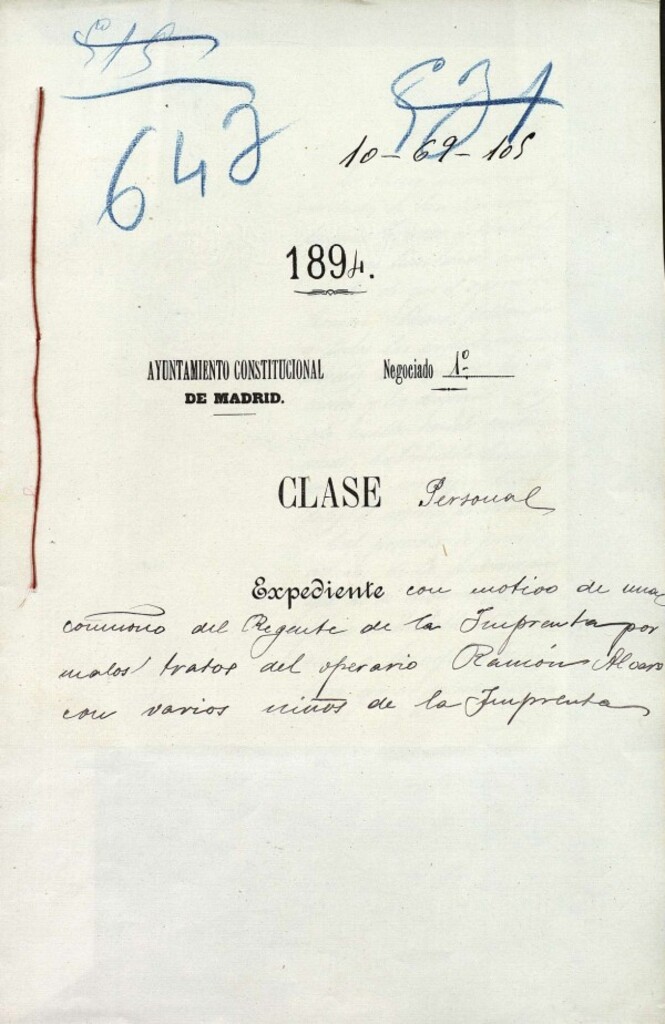 515
571
647
10-69-105
1894.
AYUNTAMIENTO CONSTITUCIONAL
DE MADRID.
Negociado 1º
CLASE Personal
Expediente con motivo de una
del Regente de la Imprenta por
malos tratos del operario Ramón Alvaro
con varios niños de la Imprenta